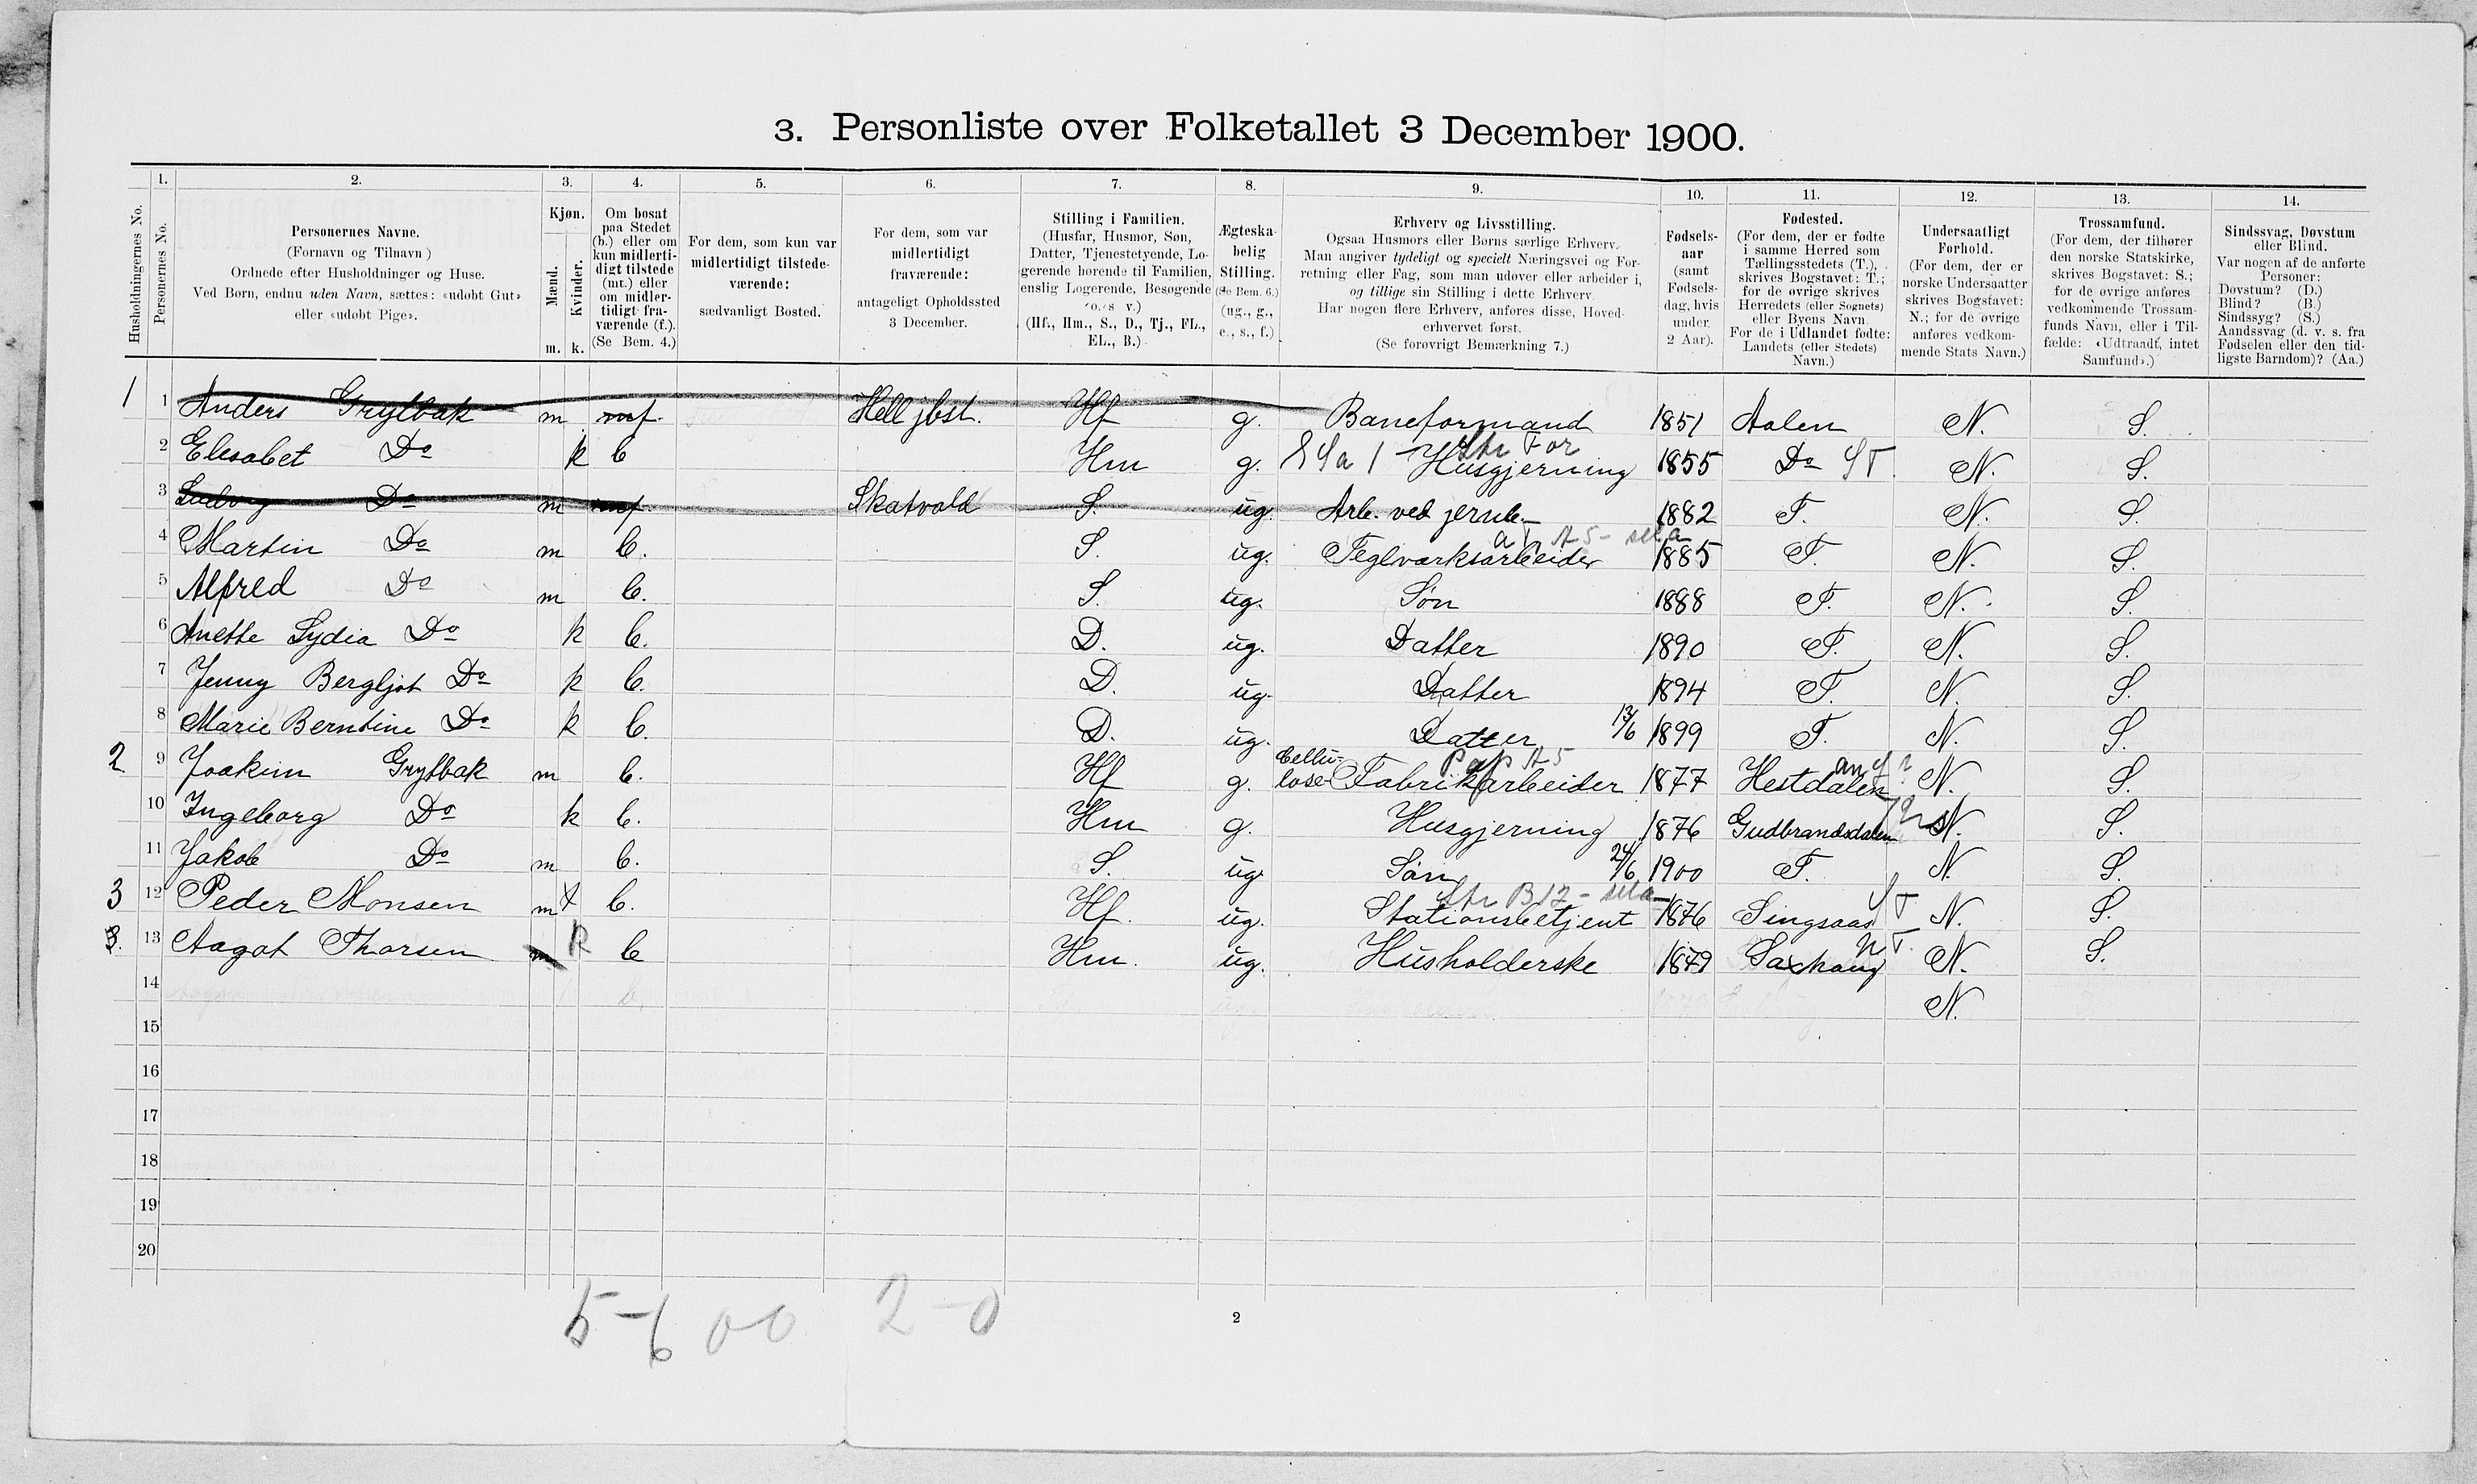 3. Personliste over Folketallet 3 December 1900.
1. 2. 3. 4. 5. 6. 7. 8. 9. 10. 11. 12. 13. 14.
Husholdningernes No.
Personernes No.
Personernes Navne.
(Fornavn og Tilnavn)
Ordnede efter Husholdninger og Huse.
Ved Børn, endnu uden Navn, sættes: «udøbt Gut»
eller «udøbt Pige».
Kjøn.
Mænd.
Kvinder.
m. k.
Om bosat
paa Stedet
(b.) eller om
kun midlerti-
digt tilstede
(mt.) eller
om midler-
tidigt fra-
værende (f.).
(Se Bem. 4.)
For dem, som kun var
midlertidigt tilstede-
værende:
sædvanligt Bosted.
For dem, som var
midlertidigt
fraværende:
antageligt Opholdssted
3 December.
Stilling i Familien.
(Husfar, Husmor, Søn,
Datter, Tjenestetyende, Lo-
gerende hørende til Familien,
enslig Logerende, Besøgende
o. s. v.)
(Hf., Hm., S., D., Tj., FL.,
EL., B.)
Ægteska-
belig
Stilling.
(Se Bem. 6.)
(ug., g.,
e., s., f.)
Erhverv og Livsstilling.
Ogsaa Husmors eller Børns særlige Erhverv.
Man angiver tydeligt og specielt Næringsvei og For-
retning eller Fag, som man udøver eller arbeider i,
og tillige sin Stilling i dette Erhverv.
Har nogen flere Erhverv, anføres disse, Hoved-
erhvervet først.
(Se forøvrigt Bemærkning 7.)
Fødsels-
aar
(samt
Fødsels-
dag, hvis
under
2 Aar).
Fødested.
(For dem, der er fødte
i samme Herred som
Tællingsstedets (T.),
skrives Bogstavet: T.;
for de øvrige skrives
Herredets (eller Sognets)
eller Byens Navn.
For de i Udlandet fødte:
Landets (eller Stedets)
Navn.)
Undersaatligt
Forhold.
(For dem, der er
norske Undersaatter
skrives Bogstavet:
N.; for de øvrige
anføres vedkom-
mende Stats Navn.)
Trossamfund.
(For dem, der tilhører
den norske Statskirke,
skrives Bogstavet: S.;
for de øvrige anføres
vedkommende Trossam-
funds Navn, eller i Til-
fælde: «Udtraadt, intet
Samfund».)
Sindssvag, Døvstum
eller Blind.
Var nogen af de anførte
Personer:
Døvstum? (D.)
Blind? (B.)
Sindssyg? (S.)
Aandssvag (d. v. s. fra
Fødselen eller den tid-
ligste Barndom)? (Aa.)
1 1 Anders Grytbak m mf. Hell jbst. Hf g. Baneformand 1851 Aalen N. S.
2 Elesabet Do k b Hm g. Husgjerning 1855 Do N. S.
3 Ludvig Do m mf. Skatvold S. ug. Arb. ved jernb. 1882 T. N. S.
4 Martin Do m b. S. ug. Teglværksarbeider 1885 T. N. S.
5 Alfred Do m b. S. ug. Søn 1888 T. N. S.
6 Anette Lydia Do k b. D. ug. Datter 1890 T. N. S.
7 Jenny Bergljot Do k b. D. ug. Datter 1894 T. N. S.
8 Marie Berntine Do k b. D. ug. Datter 13/6 1899 T. N. S.
2 9 Joakim Grytbak m b. Hf g. Cellu-lose-Fabrikarbeider 1877 Hestdalen N. S.
10 Ingeborg Do k b. Hm g. Husgjerning 1876 Gudbrandsdalen N. S.
11 Jakob Do m b. S. ug. Søn 24/6 1900 T. N. S.
3 12 Peder Monsen m b. Hf. ug. Stationsbetjent 1876 Singsaas N. S.
3. 13 Aagot Thorsen m k b Hm. ug. Husholderske 1879 Saxhaug N. S.
14 N.
15
16
17
18
19
20
5-6 00 2-0
2